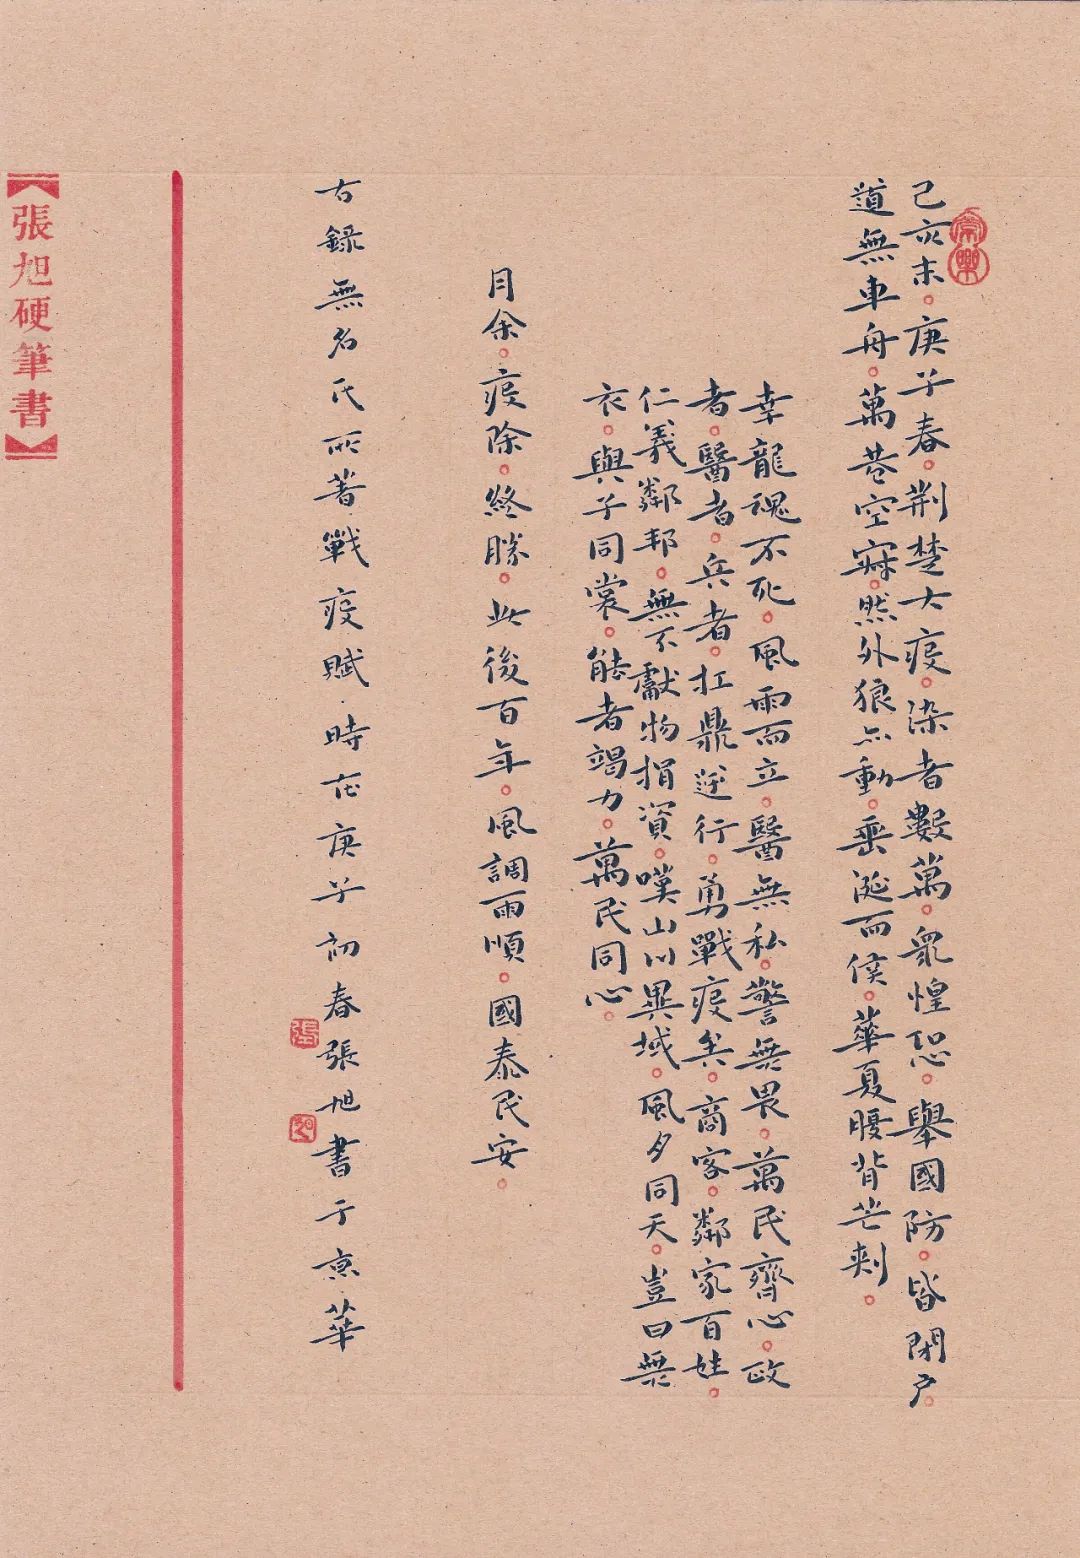 己亥末。庚子春。荆楚大疫。染者數萬。眾惶恐。舉國防。皆閉户。
道無車舟。萬巷空寂。然外狼亦動。垂涎而候。華夏腹背芒刺。
幸龍魂不死。風雨而立。醫無私。警無畏。萬民齊心。政
者。醫者。兵者。扛鼎逆行。勇戰疫矣。商客。鄰家百姓。
仁義鄰邦。無不獻物捐資。嘆山川異域。風夕同天。豈曰無
衣。與子同裳。能者竭力。萬民同心。
月余。疫除。終勝。此後百年。風調雨順。國泰民安。
右錄無名氏所著戰疫賦時在庚子初春張旭書于京華
張
旭
【張旭硬筆書】